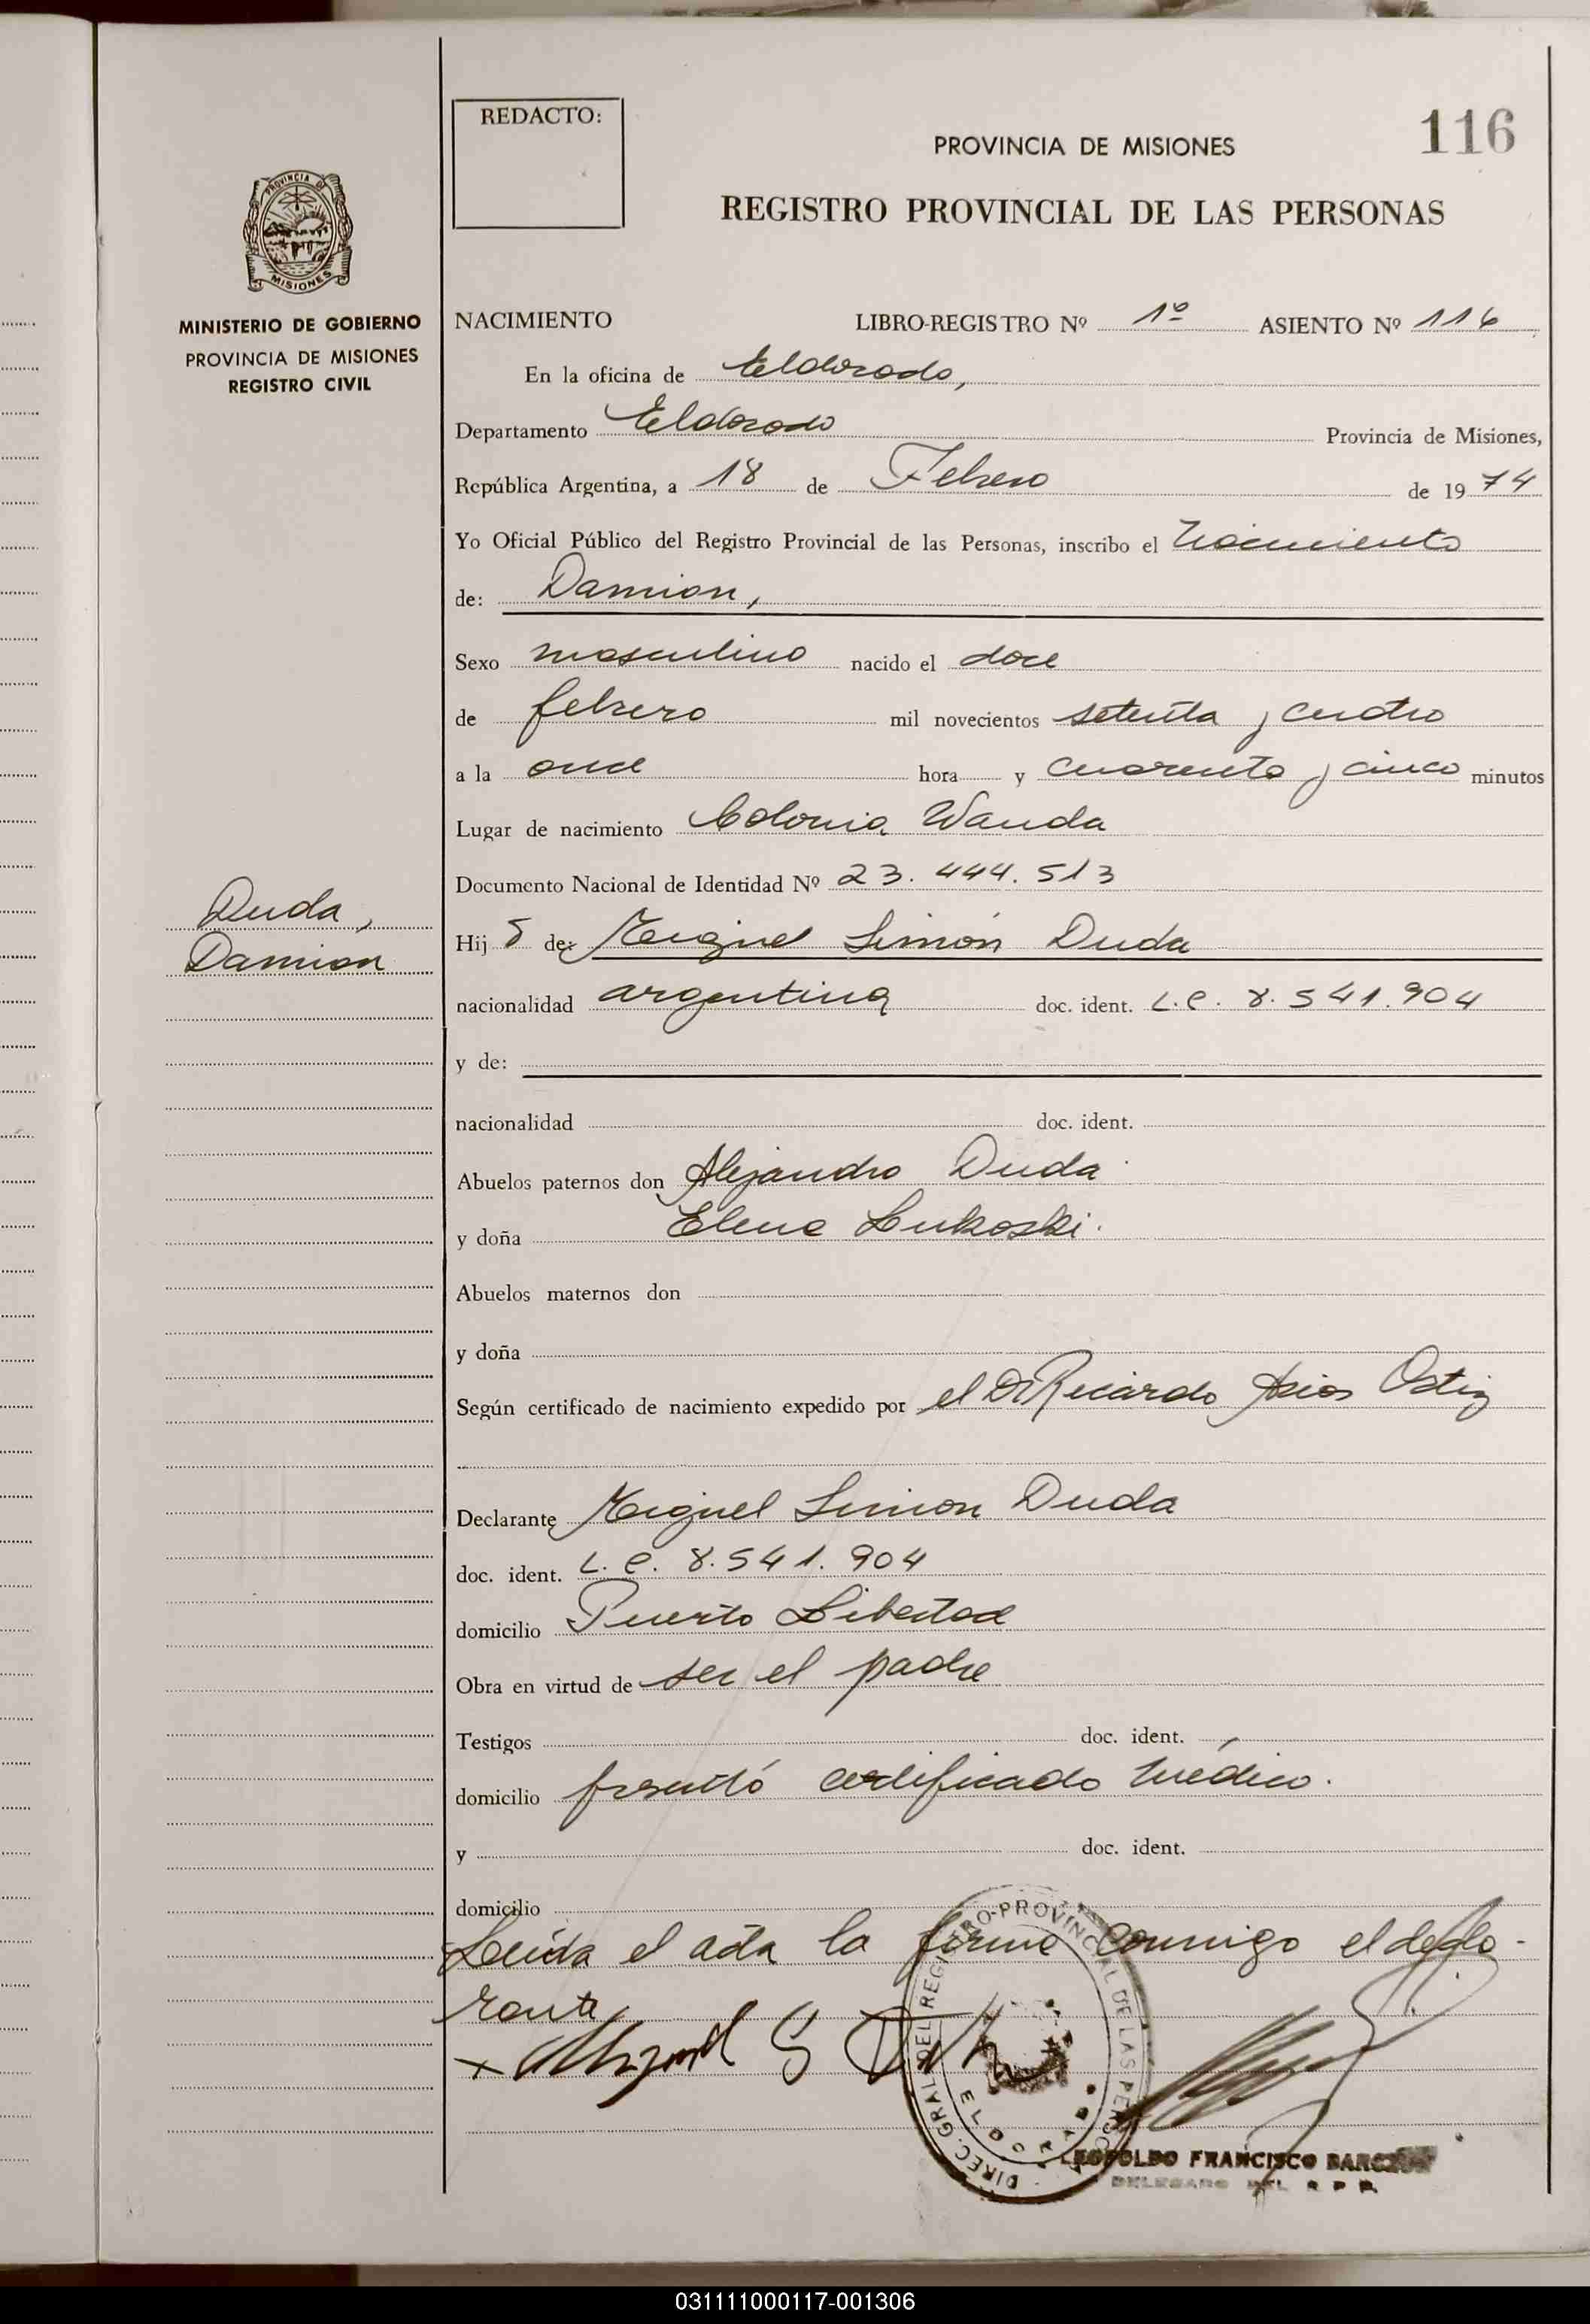 116
REDACTO:
PROVINCIA DE MISIONES
REGISTRO PROVINCIAL DE LAS PERSONAS
PROVINCIA DE
MISIONES
MINISTERIO DE GOBIERNO
PROVINCIA DE MISIONES
REGISTRO CIVIL
NACIMIENTO LIBRO-REGISTRO Nº 1º ASIENTO Nº 116
En la oficina de Eldorado,
Departamento Eldorado Provincia de Misiones,
República Argentina, a 18 de Febrero de 1974
Yo Oficial Público del Registro Provincial de las Personas, inscribo el Nacimiento
de: Damian,
Sexo masculino nacido el doce
de febrero mil novecientos setenta y cuatro
a la once hora y cuarenta y cinco minutos
Lugar de nacimiento Colonia Wanda
Documento Nacional de Identidad Nº 23.444.513
Duda,
Damian
Hijo de: Miguel Simón Duda
nacionalidad argentina doc. ident. L.E. 8.541.904
y de:
nacionalidad doc. ident.
Abuelos paternos don Alejandro Duda
y doña Elena Lukoski.
Abuelos maternos don
y doña
Según certificado de nacimiento expedido por el Dr Ricardo Ortiz
Declarante Miguel Simon Duda
doc. ident. L.E. 8.541.904
domicilio Puerto Libertad
Obra en virtud de ser el padre
Testigos doc. ident.
domicilio presentó certificado médico.
y doc. ident.
domicilio
Leída el acta la firma conmigo el decla-
rante
x Miguel S Duda
DIREC. GRAL DEL REGISTRO PROVINCIAL DE LAS PERSONAS
ELDORADO
LEOPOLDO FRANCISCO
DELEGADO DEL R P P
031111000117-001306